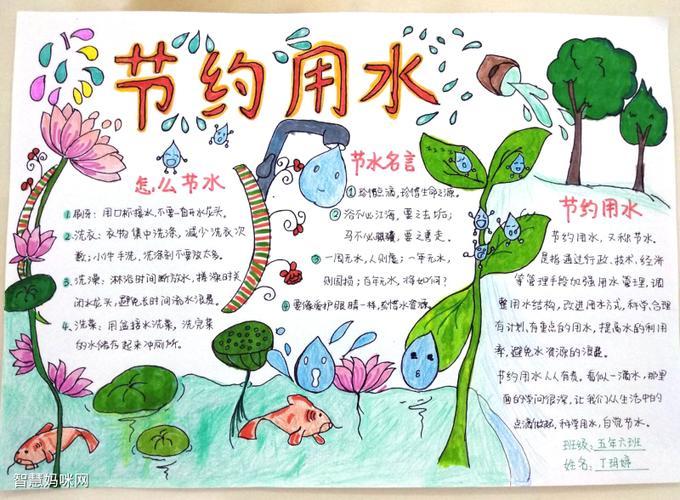 节约用水
怎么节水
1 刷牙:用口杯接水,不要一直开水龙头。
2 洗衣:衣物集中洗涤,减少洗衣次
数;小件手洗,洗涤剂不要放太多。
3 洗澡:淋浴时间断放水,搓澡时关
闭水龙头,避免长时间
4 洗菜:用盆接水洗菜,洗完菜
的水储存起来冲厕所。
节水名言
① 珍惜点滴,珍惜生命之源。
② 浴不必江海,要之去垢;
马不必骐骥,要之善走。
③ 一周无水,人则危;一年无水,
则国损;百年无水,将如何?
④ 要像爱护眼睛一样,珍惜水资源。
节约用水
节约用水,又称节水。
是指通过行政、技术、经济
等管理手段加强用水管理,调
整用水结构,改进用水方式,科学、合理
有计划、有重点的用水,提高水的利用
率,避免水资源的浪费。
节约用水人人有责。看似一滴水,那里
面的学问很深,让我们从生活中的
点滴做起,科学用水,自觉节水。
班级:五年六班
姓名:丁玥婷
智慧妈咪网